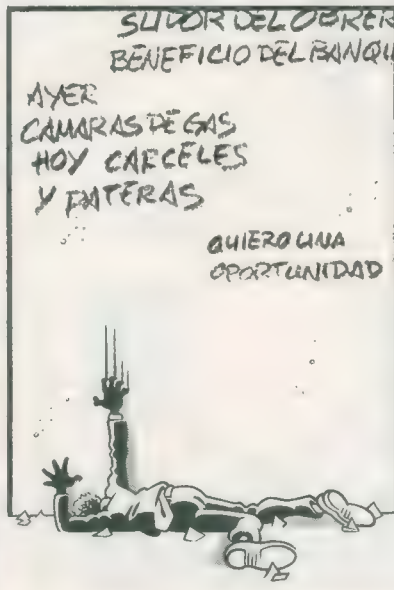 SUDOR DEL OBRER
BENEFICIO DEL BANQU
AYER
CAMARAS DE GAS
HOY CARCELES
Y PATERAS
QUIERO UNA
OPORTUNIDAD